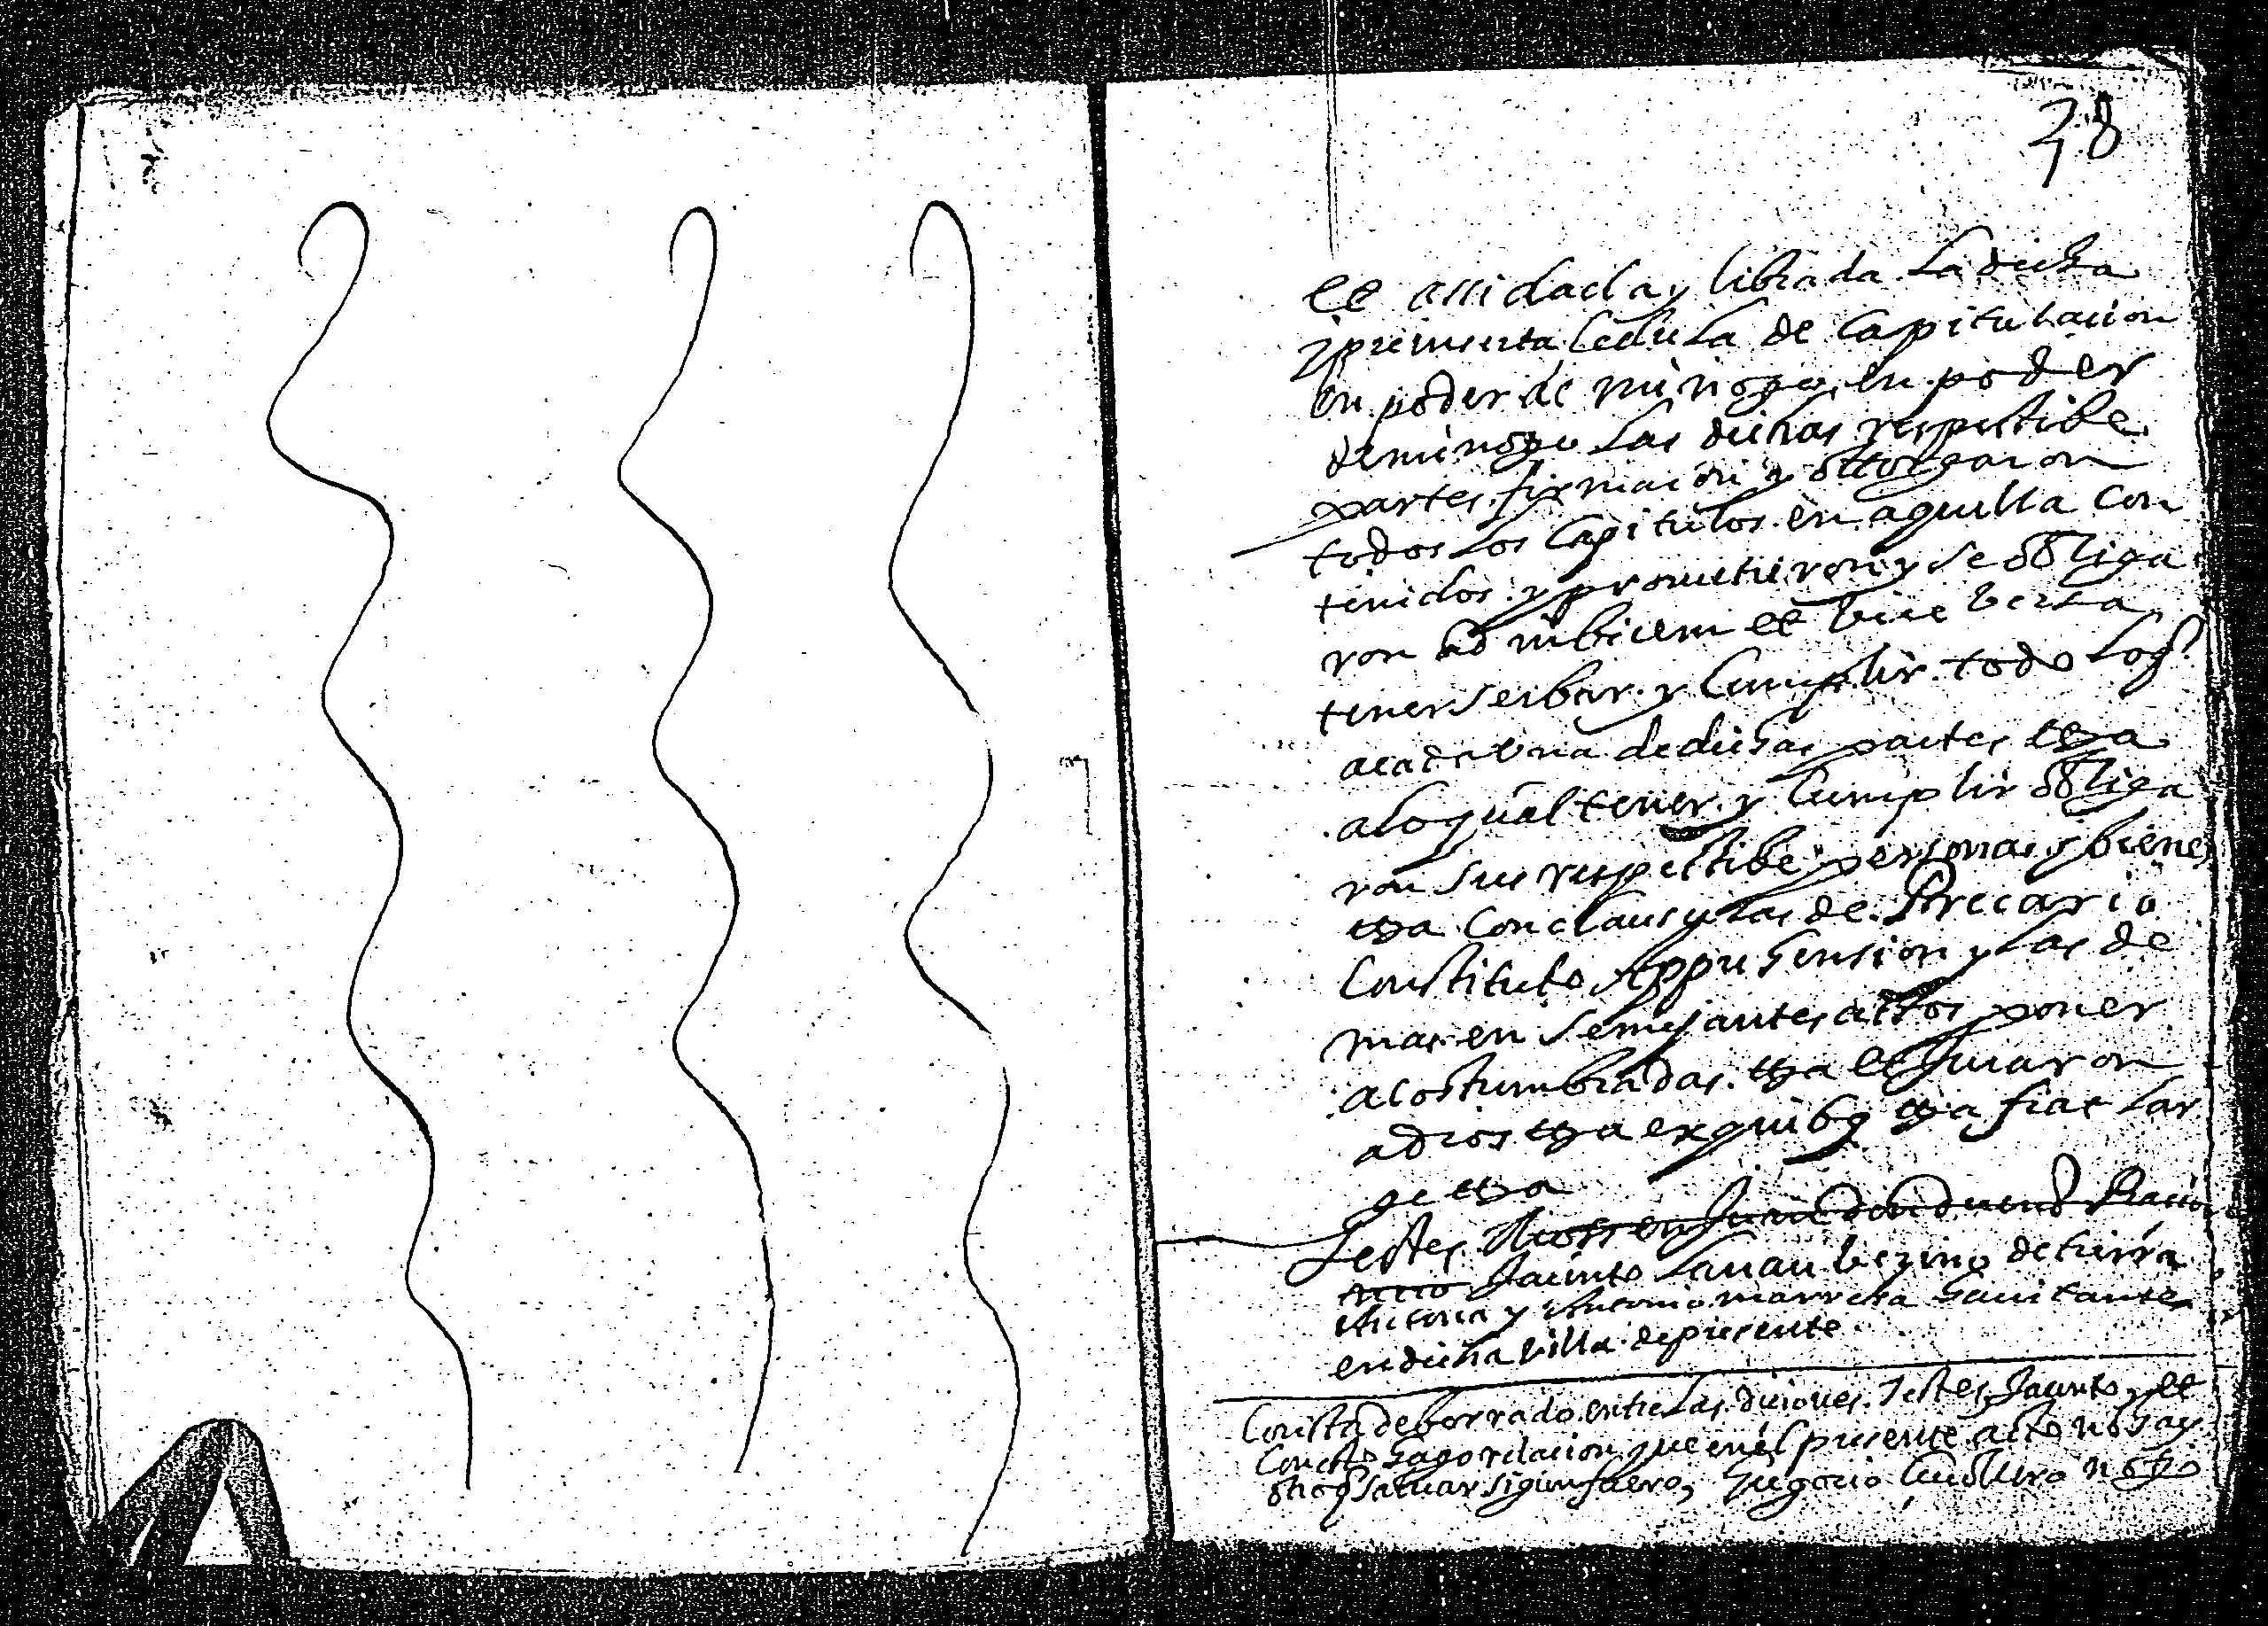 38
et assi dada y librada la dicha
y presente Cedula de Capitulacion
en poder de mi noto en poder
de mi noto las dichas respectibe
partes firmaron y ottorgaron
todos los Capitulos en aquella con
tenidos y prometieron y se obliga
ron ad inbicem et bice bersa
tener serbar y Cumplir todo loq
a cada una de dichas partes etta
a lo qual tener y Cumplir obliga
ron sus respectibe personas y bienes
etta Con clausulas de Precario
Constituto Appreension y las de
mas en semejantes actos poner
acostumbradas etta et juraron
a dios etta ex quibq etta fiat lar
ge etta
Testes Mossen
Jacinto Lanau bezino de tierra
y Antonio habitantes
en dicha billa de presente
Consta de borrado entre las diciones Testes Jacinto et
Consto hago relacion que en el presente acto no hay
otro q salvar sigun fuero, Gregorio notio